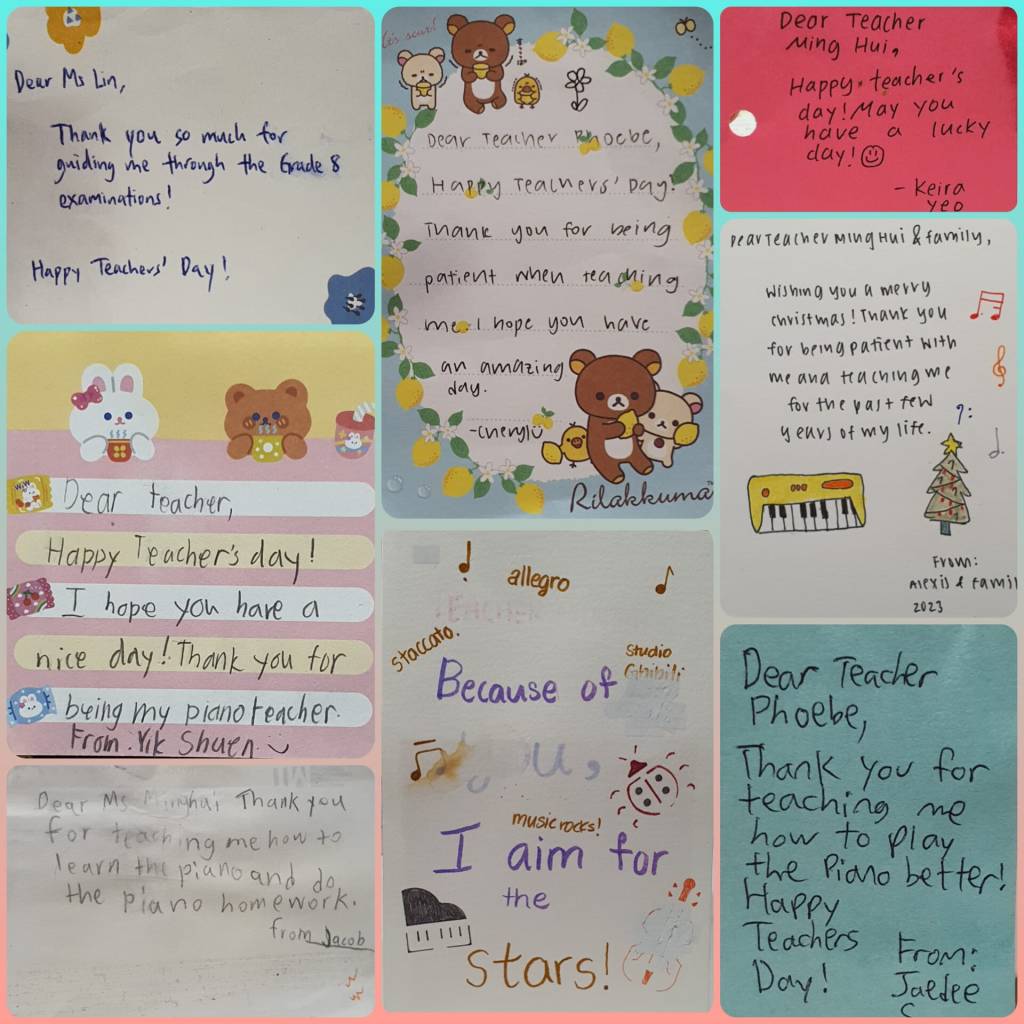 Dear Ms Lin,
Thank you so much for
guiding me through the Grade 8
examinations!
Happy Teachers' Day!
Dear Teacher Phoebe,
Happy Teachers' Day!
Thank you for being
patient when teaching
me. I hope you have
an amazing
day.
-Cheryl
Rilakkuma
Dear Teacher
Ming Hui,
Happy teacher's
day! May you
have a lucky
day!
- Keira
Yeo
Dear Teacher Ming Hui & family,
Wishing you a merry
christmas! Thank you
for being patient with
me and teaching me
for the past few
years of my life.
From:
Alexis & Famil
2023
Dear teacher,
Happy Teacher's day!
I hope you have a
nice day! Thank you for
being my piano teacher.
From. Yik Shuen.
allegro
TEACHER
staccato.
Studio
Ghibili
Because of
you,
music rocks!
I aim for
the
stars!
Dear Teacher
Phoebe,
Thank you for
teaching me
how to play
the Piano better!
Happy
Teachers
Day!
From:
Jaedee
Dear Ms Minghui Thank you
for teaching me how to
learn the piano and do
the piano homework.
from Jacob